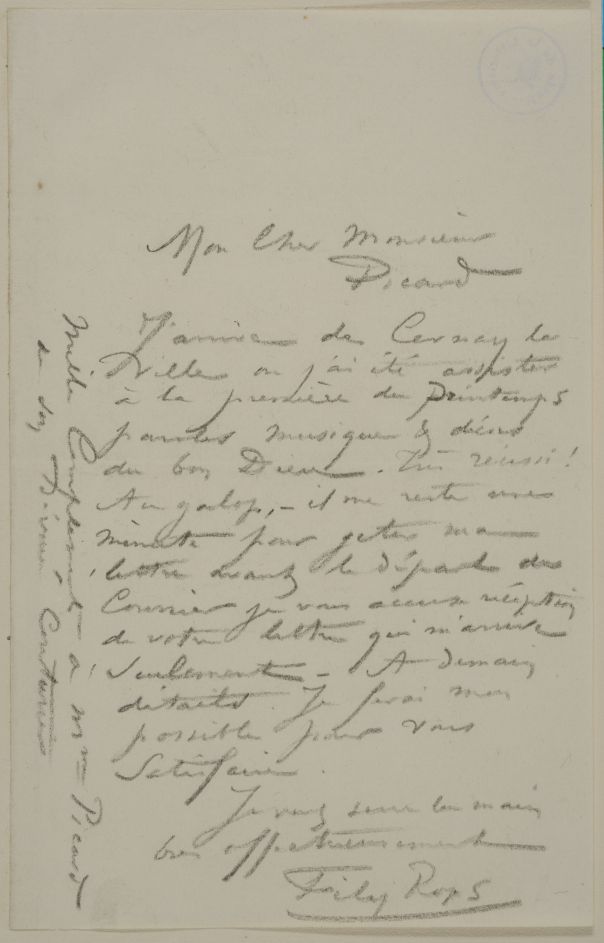 Mon Cher Monsieur
Picard
J'arrive de Cernay la
Ville où j'ai été assister
à la première du Printemps
paroles musique & décors
du bon Dieu. Très réussi!
Au galop, - il me reste une
minute pour jeter ma
lettre avant le départ du
Courrier je vous accuse réception
de votre lettre qui m'arrive
seulement - A demain
détails. Je ferai mon
possible pour vous
Satisfaire.
Je vous serre la main
bien affectueusement
Félicien Rops
Mille Compliments à Mme Picard
de son Dévoué